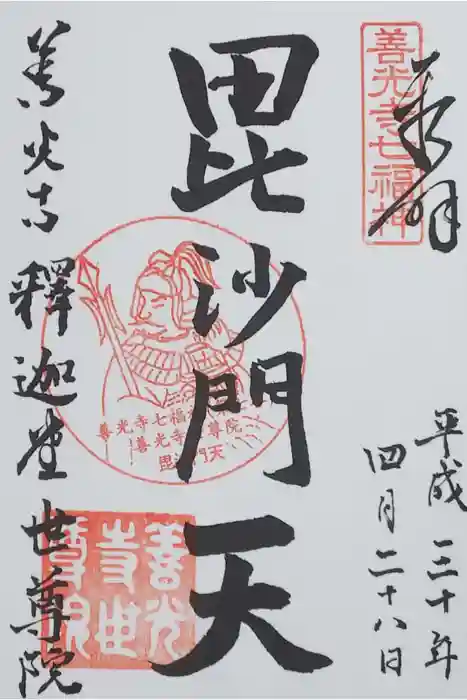 奉拝
善光寺七福神
平成三十年
四月二十八日
毘沙門天
善光寺七福
善光寺 尊院
毘沙門天
善光寺世尊院
善光寺釋迦堂世尊院